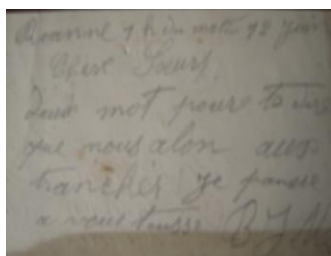 Roanne 7 h du mat 12 Juin
Chère Sœurs
Deux mot pour te dire
que nous alon aux
tranchés je panse
a vous tousse